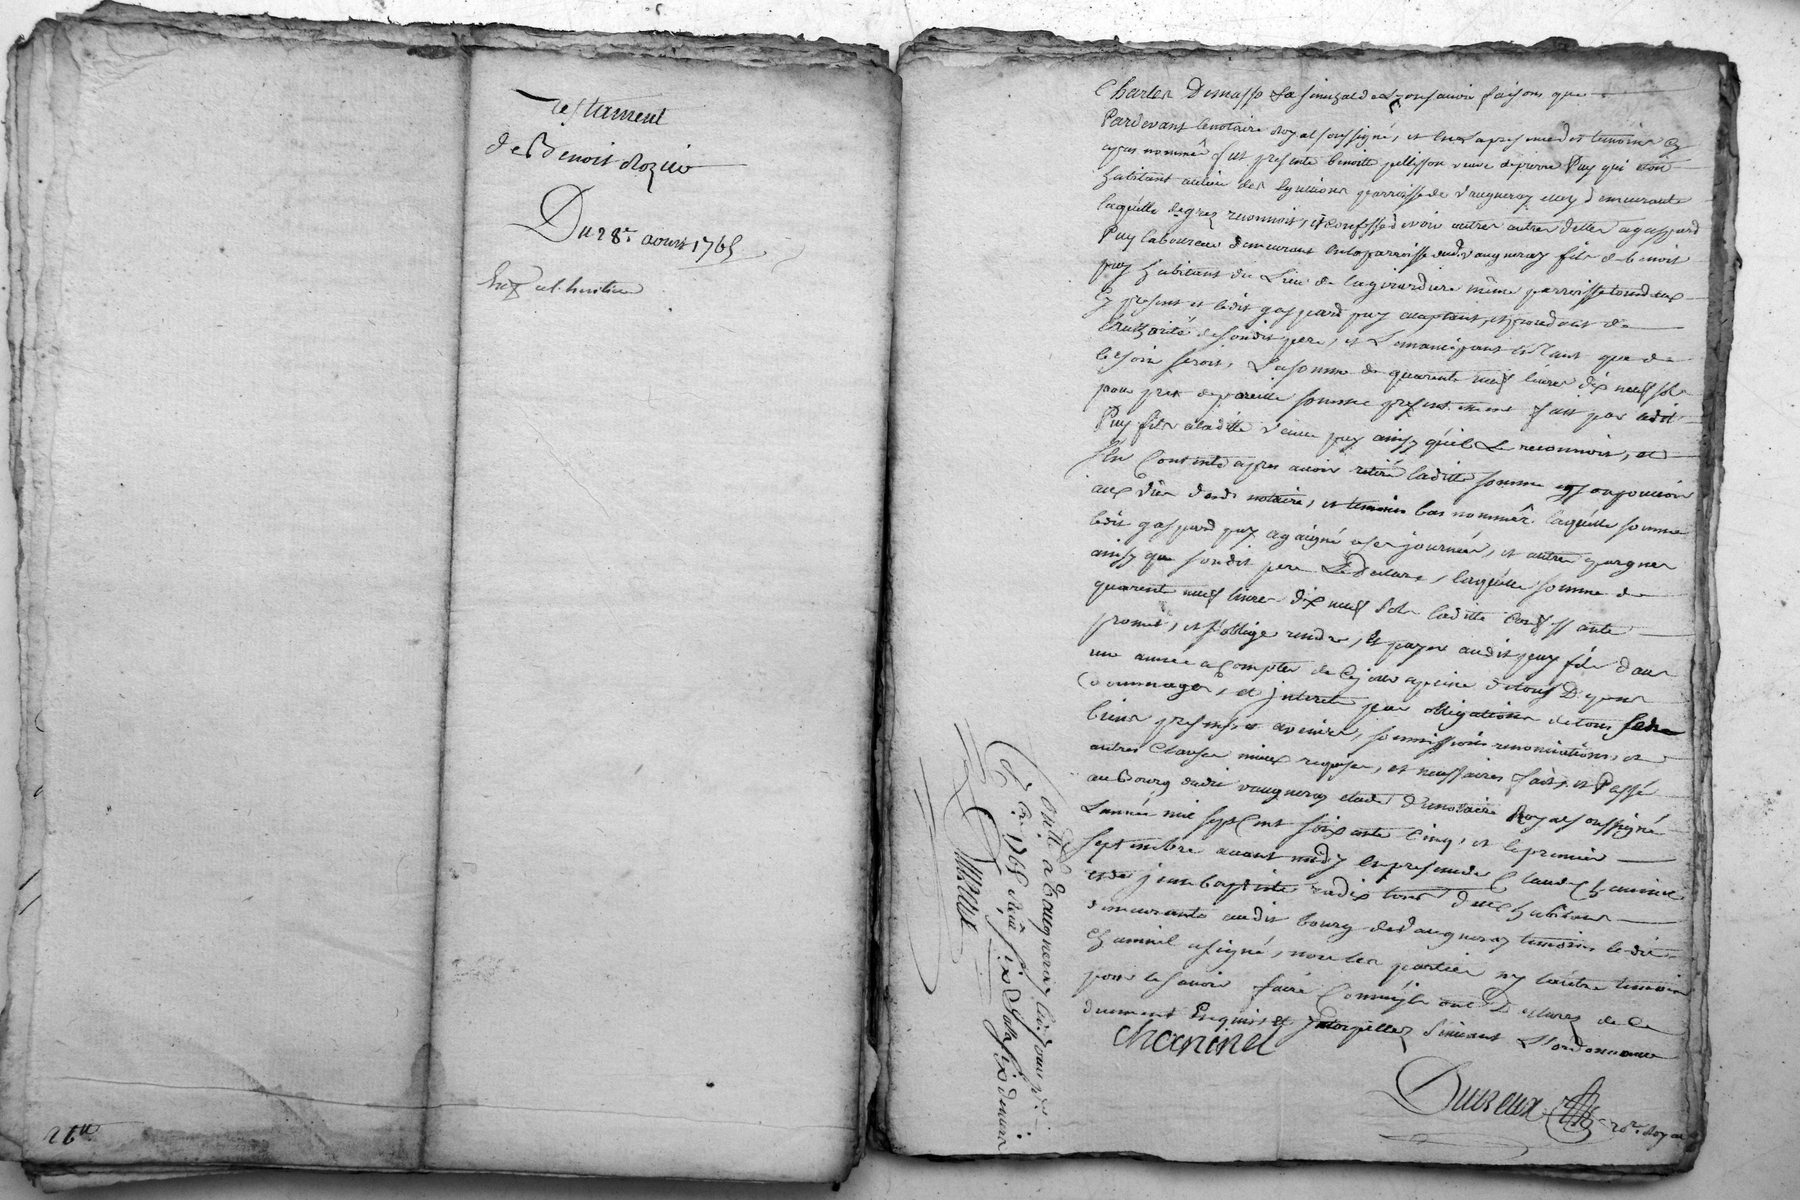 Testament
de Benoit Rozier
Du 28e aoust 1765
26ll
Charles Demasso La senechal de Lyon savoir faisons que
Pardevant le notaire Royal soussigné, et en la presence des temoins cy
apres nommés fut presente benoitte pellisson veuve de pierre Puy qui etoit
habitant au lieu des parroisse de vaugneray y demeurante
laquelle de grez reconnoit, et confesse devoir outres autres dettes a gaspard
Puy laboureur demeurant en la parroisse dudit vaugneray fils de benoit
puy habitant du Lieu de la girardiere même parroisse tous deux
cy presents et ledit gaspard puy acceptant, et procedant de
l'authorité de sondit pere, et L'emancipant en tant que de
besoin seroit, La somme de quarante neuf livres dix neuf sols
pour prest de pareille somme presentement fait par ledit
Puy fils a laditte veuve puy ainsy qu'elle Le reconnoit, et
a l'instant apres avoir retiré laditte somme en son pouvoir
aux vües dudit notaire, et temoins bas nommés laquelle somme
ledit gaspard puy a gaigné a ses journées, et autres epargnes
ainsy que sondit pere Le Declare, laquelle somme de
quarante neuf livres dix neuf sols laditte confessante
promet, et s'oblige rendre, et payer audit puy fils dans
une année a Compter de Ce jour a peine de tous Depens
Dommages, et interets par obligations de tous ses
biens presents, et avenirs, soumissions renonciations, et
autres Clauses mieux requises, et necessaires fait, et Passé
au Bourg dudit vaugneray etude du notaire Royal soussigné
L'année mil sept Cent soixante Cinq, et le premier
septembre avant midy en presence de Claude Chaninel
et de jean baptiste radix tous deux habitans
demeurants audit bourg de vaugneray temoins ledit
Chaninel a signé, non les parties ny l'autre temoin
pour le savoir faire Comm'ils ont Declarez de Ce
deument Enquis, et Interpellez Suivant L'ordonnance
Chaninel
Dutreux
nore Royal
Con.llé à Vaugneray
1765 Reçû six Sols six deniers
Dutreux